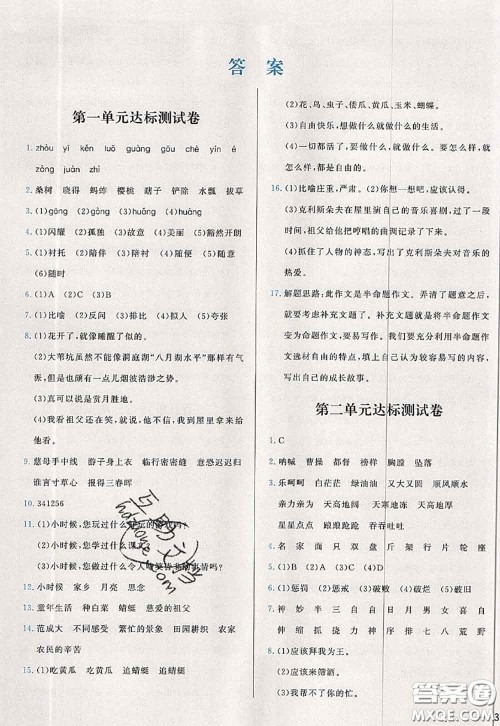 答 案
第一单元达标测试卷
1. zhòu yì kěn luō guàng gōu chè yín é
zōng juàn zhì
2. 桑树 晓得 蚂蚱 樱桃 瞎子 铲除 水瓢 拔草
3. (1)gōng (2)huǎng
4. (1)闪耀 孤独 故意 (2)美丽 豁然开朗
5. (1)衬托 (2)陪伴 (3)随意 (4)随着 (5)随便
(6)随时
6. (1)A (2)C (3)B
7. (1)比喻 (2)反问 (3)排比 (4)拟人 (5)夸张
8. (1)花开了,就像睡醒了似的。
(2)大苇坑虽然不能像洞庭湖“八月湖水平”那样有气
派,但是也颇有一点儿烟波浩渺之势。
(3)真可以说是赏月胜地。
(4)我看祖父还在笑,就跑进屋里,拿到屋里来大喊
起来。
9. 慈母手中线 游子身上衣 临行密密缝 意恐迟迟归
谁言寸草心 报得三春晖
10. 341256
11. (1)小时候,您玩过什么好玩的游戏吗?
(2)小时候,您学过什么课文?
(3)小时候,您做过什么令人啼笑皆非的事情吗?
12. 小时候 家乡 月亮 思念
13. 童年生活 种白菜 蜻蜓 慈爱的祖父
14. 范成大 不同感受 繁忙的景象 田园耕织 农家
农民的辛苦
15. (1)吃黄瓜 追蜻蜓 吃黄瓜 追蜻蜓
(2)花、鸟、虫子、倭瓜、黄瓜、玉米、蝴蝶。
(3)自由快乐,想做什么就做什么的生活。
(4)一切都活了,要做什么,就做什么。要怎么样,就
怎么样,都是自由的。
16. (1)比喻庄重,严肃。 (2)你想一想吧,应该承认。
(3)克利斯朵夫在屋里演自己的音乐喜剧,过了一段
时间,祖父给他把哼唱的曲调记录了下来。
(4)抓住了人物的神态,写出了克利斯朵夫对音乐的
热爱。
17. 解题思路:此作文是半命题作文。弄清了题意之后,
就要考虑补充文题。补充文题就是把半命题作文
变为命题作文,要易写作。我们可以利用半命题作
文选材自由的特点,填上自己体验较深的内容,写出
自己的成长故事。
第二单元达标测试卷
1. C
2. 呐喊 曹操 都督 榜样 胸膛 坠落
3. 乐呵呵 白茫茫 绿油油 又大又圆 顺风顺水
亲力亲为 天高地阔 天寒地冻 天高地厚
星星点点 踉踉跄跄 吞吞吐吐
4. 名 家 面 只 双 盘 斤 架 行 片 轮 座
5. (1)惩罚 (2)惩戒 (3)破坏 (4)破烂 (5)破旧
6. 神 妙 半 三 自 日 月 男 女 喜 自
伸 缩 抓 挠 力 神 半 排 七 八 荒 野
7. (1)应该拜我为王。
(2)应该来筛酒。
(3)我是不会忘了你的忙。